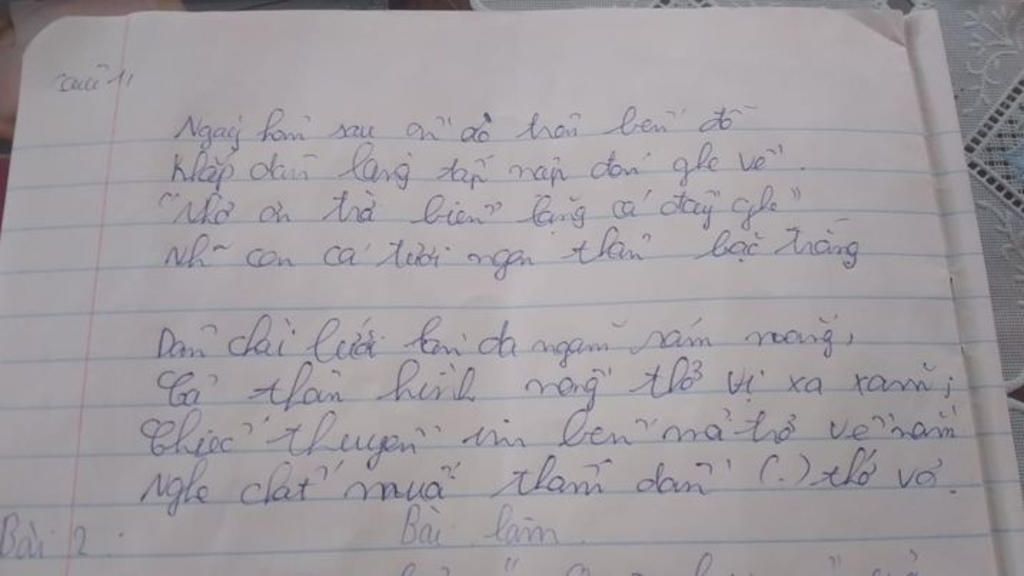 câu 1,
Ngày hôm sau ồn ào trên bến đỗ
Khắp dân làng tấp nập đón ghe về.
"Nhờ ơn trời biển lặng cá đầy ghe"
Những con cá tươi ngon thân bạc trắng
Dân chài lưới làn da ngăm rám nắng,
Cả thân hình nồng thở vị xa xăm;
Chiếc thuyền im bến mỏi trở về nằm
Nghe chất muối thấm dần (.) thớ vỏ.
Bài 2: Bài làm